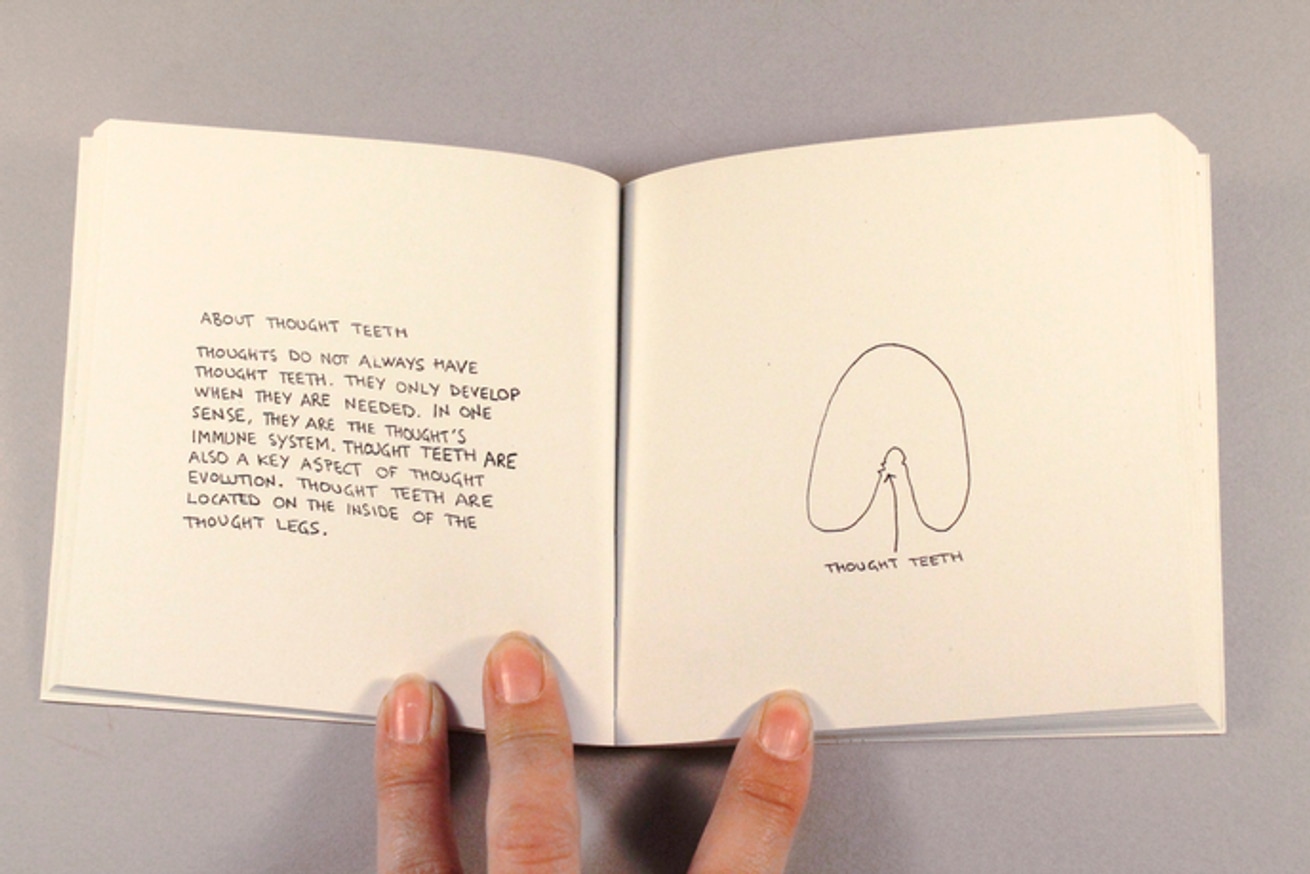 ABOUT THOUGHT TEETH
THOUGHTS DO NOT ALWAYS HAVE
THOUGHT TEETH. THEY ONLY DEVELOP
WHEN THEY ARE NEEDED. IN ONE
SENSE, THEY ARE THE THOUGHT'S
IMMUNE SYSTEM. THOUGHT TEETH ARE
ALSO A KEY ASPECT OF THOUGHT
EVOLUTION. THOUGHT TEETH ARE
LOCATED ON THE INSIDE OF THE
THOUGHT LEGS.
THOUGHT TEETH